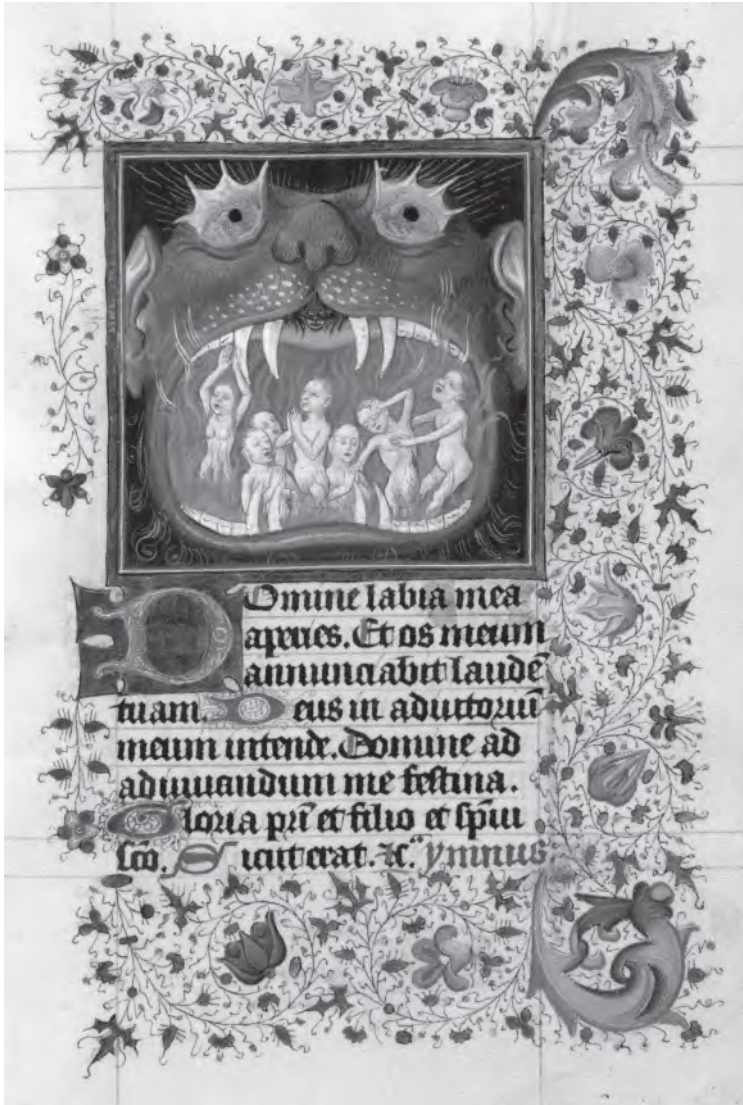 Domine labia mea
aperies. Et os meum
annunciabit laudē
tuam. Deus in adiutoriū
meum intende. Domine ad
adiuuandum me festina.
Gloria pr̄i et filio et sp̄ui
sc̄o. Sicut erat. ⁊c. ymnus